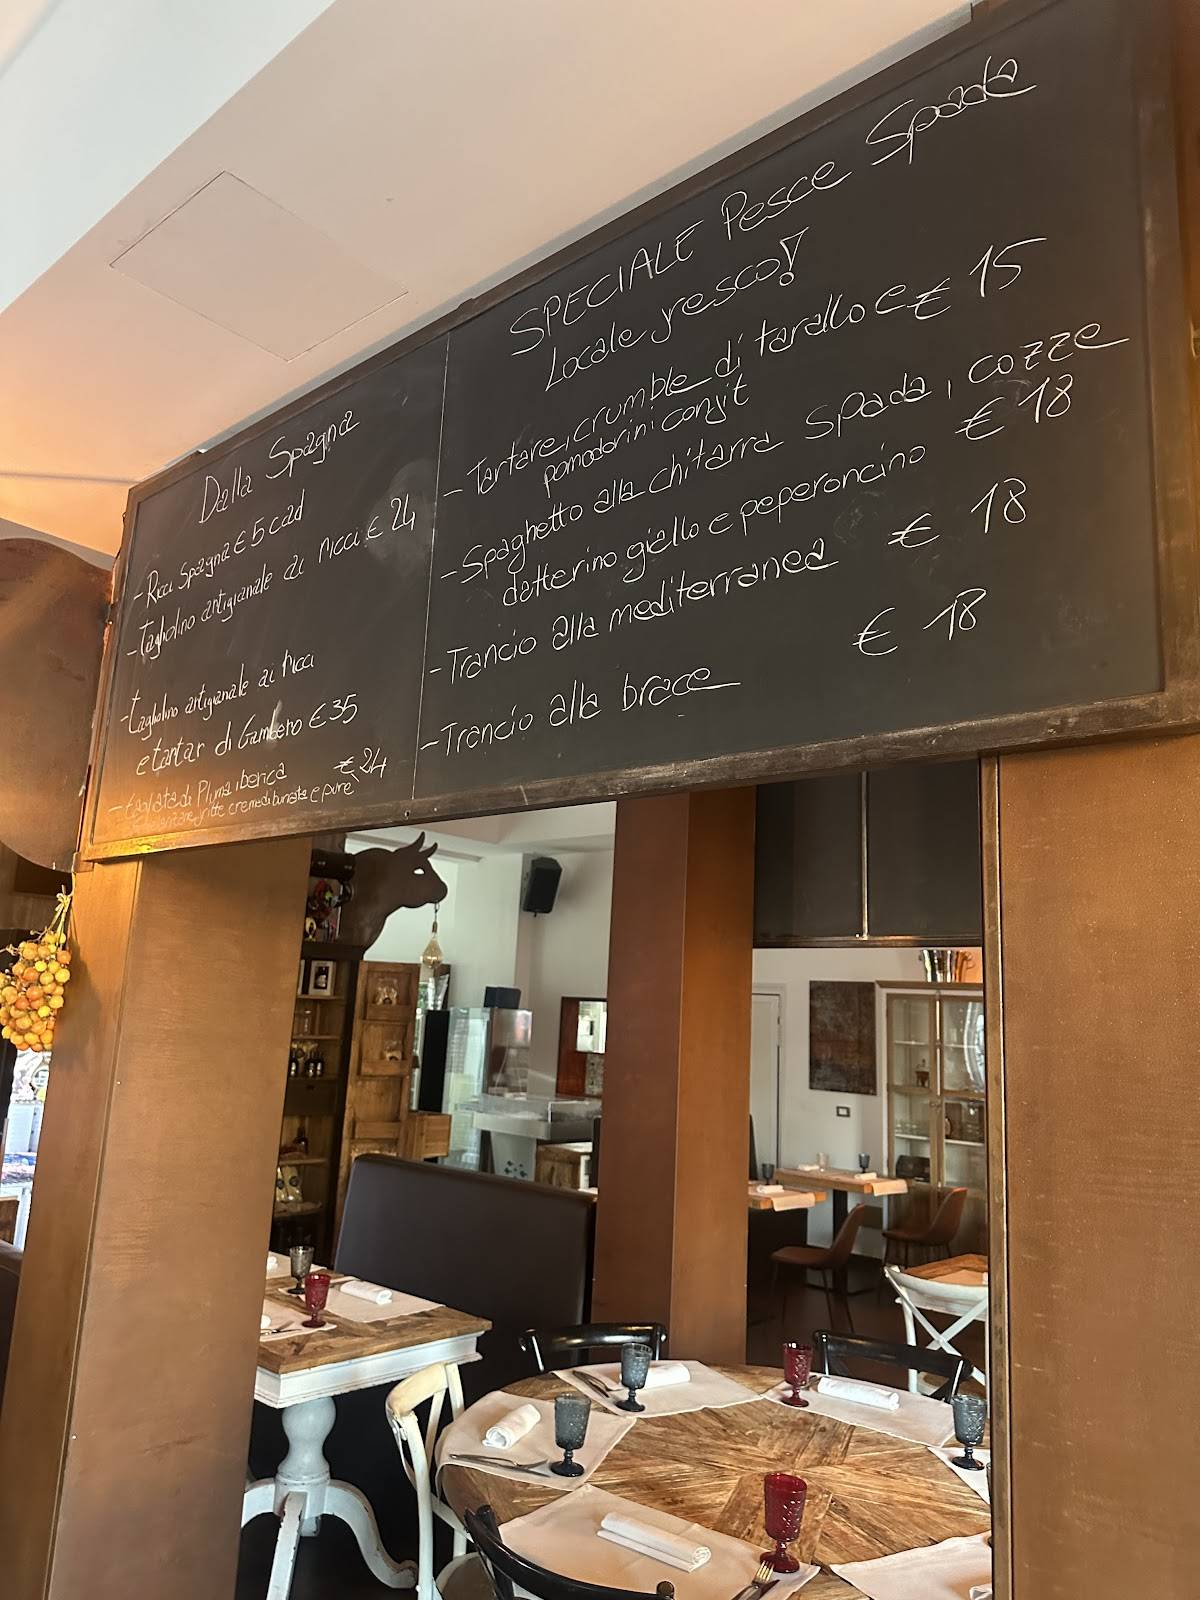 Dalla Spagna
- Ricci Spagna € 5 cad
- Tagliolino artigianale ai ricci € 24
- tagliolino artigianale ai ricci
e tartar di Gambero € 35
- Tagliata di Pluma iberica € 24
fritte crema di burrata e purè
SPECIALE Pesce Spada
Locale fresco!
- Tartare, crumble di tarallo e € 15
pomodorini confit
- Spaghetto alla chitarra spada, cozze
datterino giallo e peperoncino € 18
- Trancio alla mediterranea € 18
- Trancio alla brace € 18